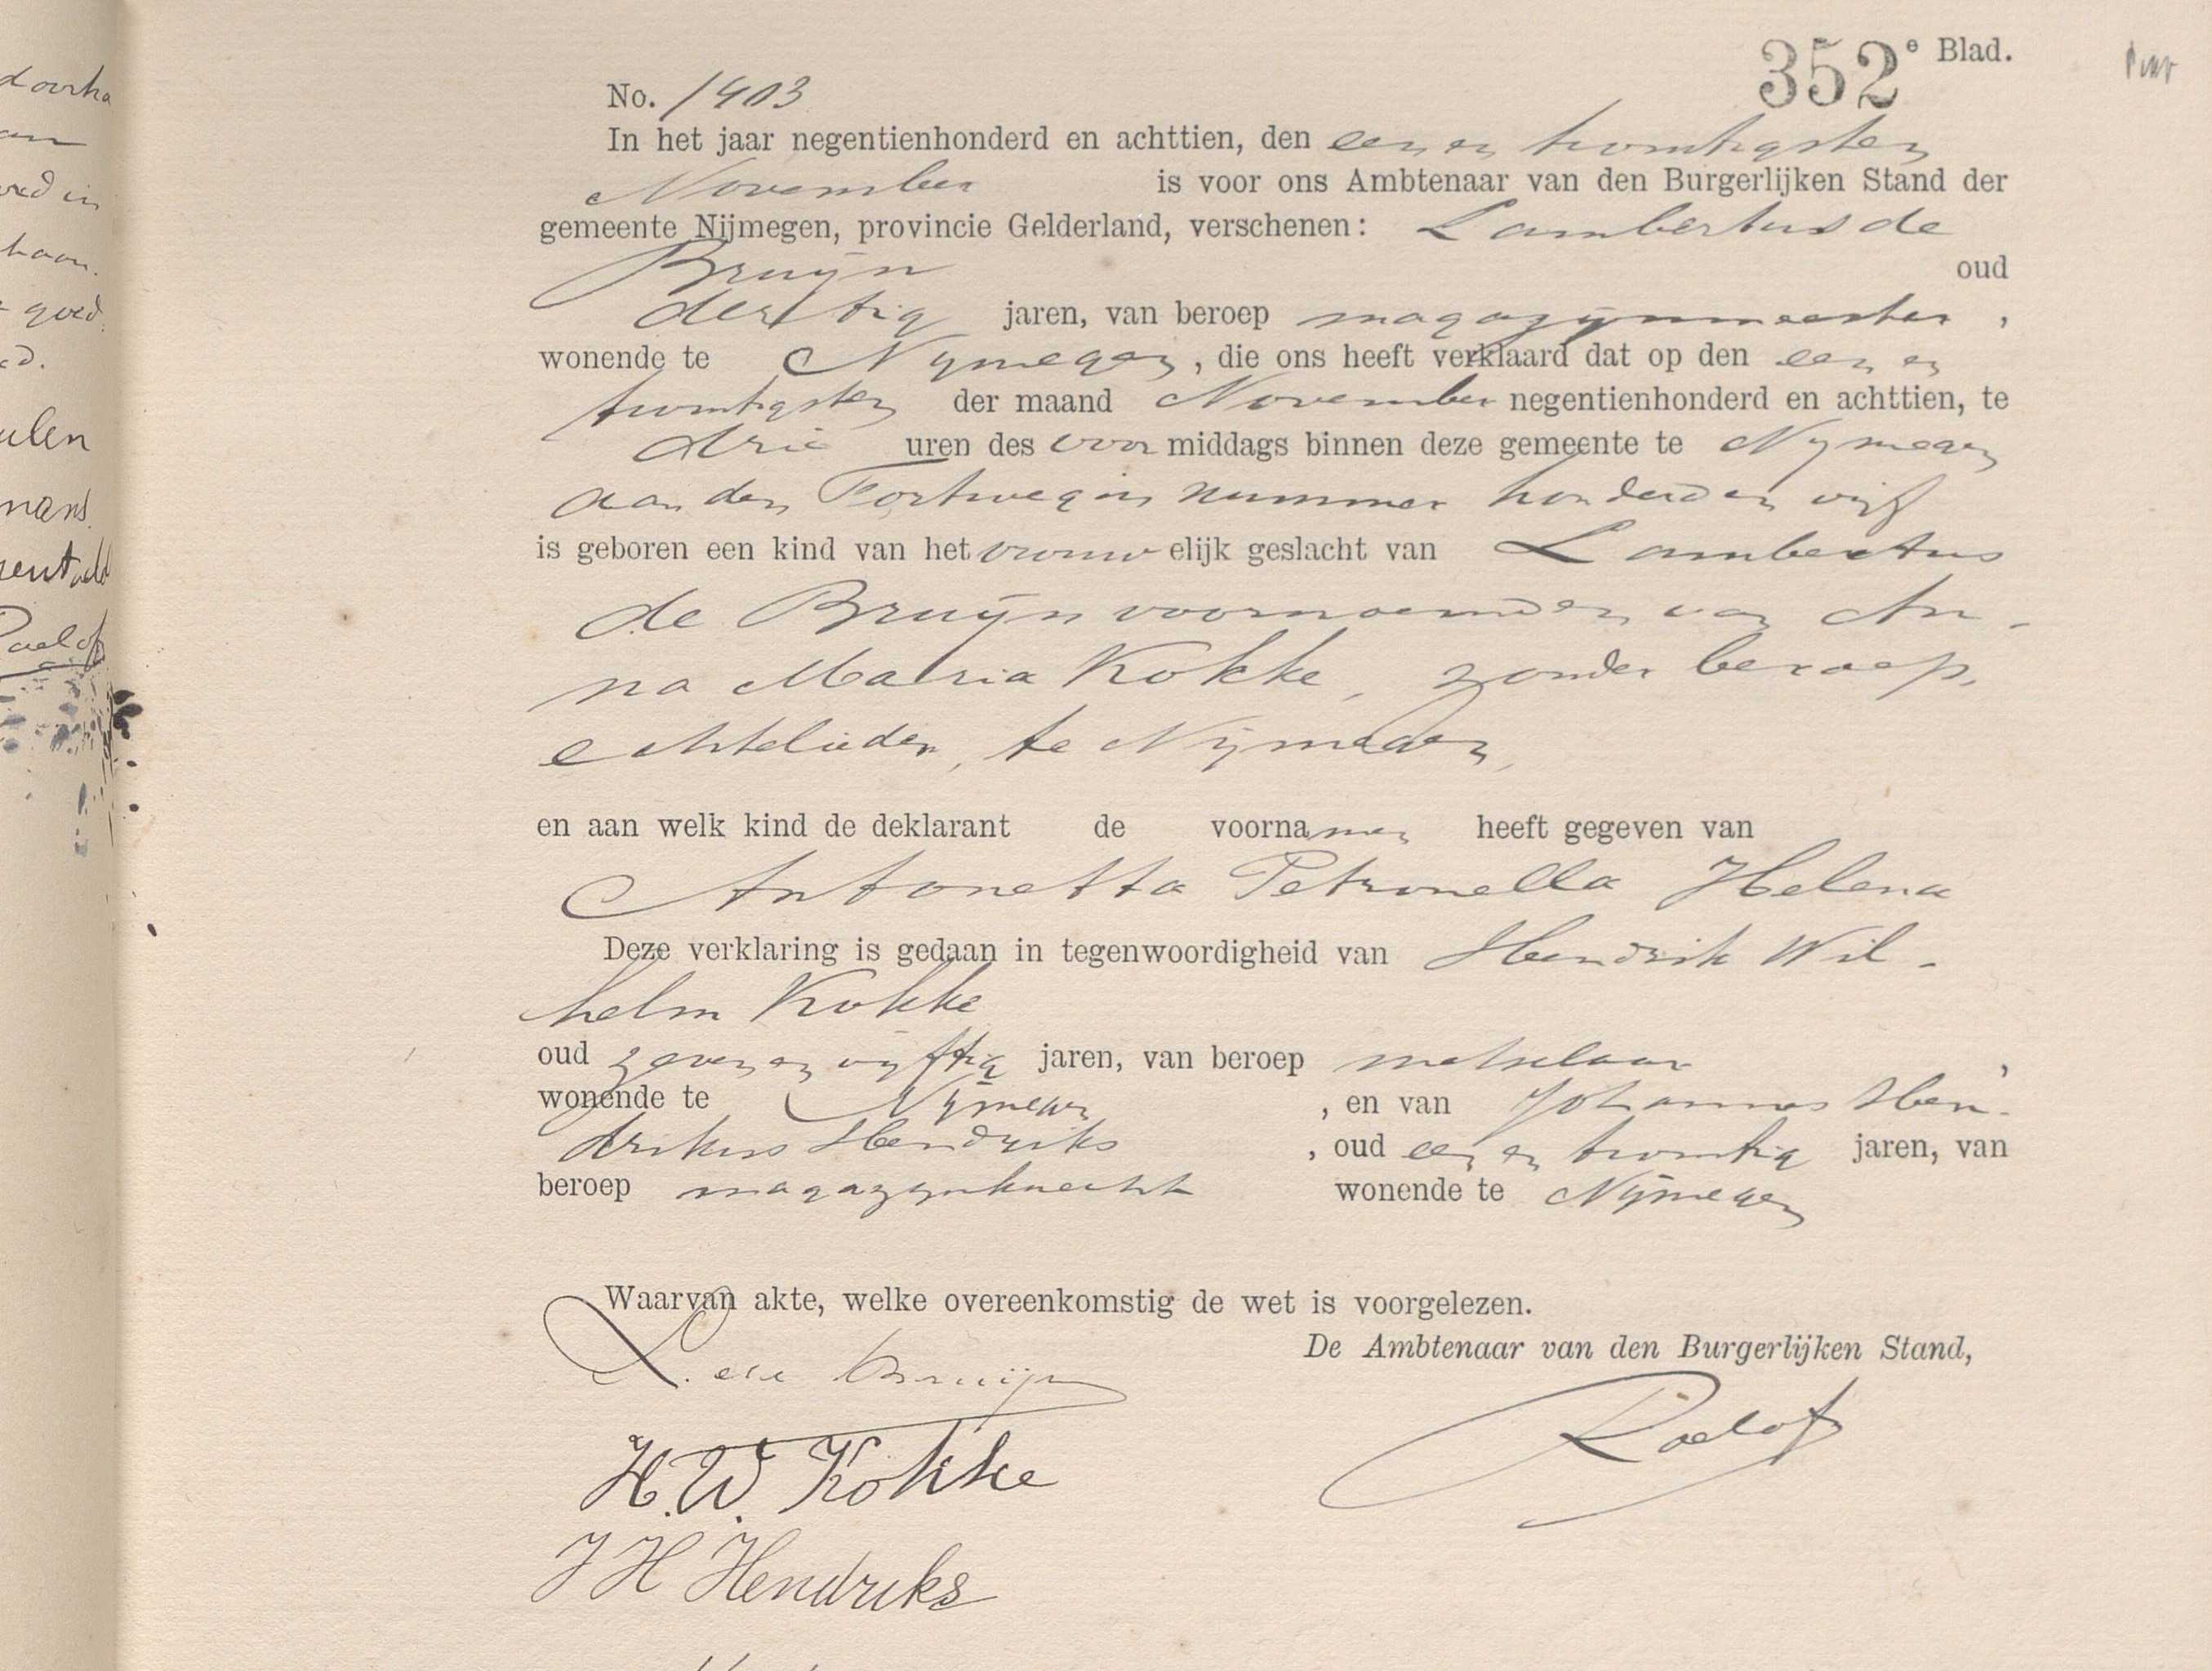 352e Blad.
No. 1403
In het jaar negentienhonderd en achttien, den een en twintigsten
November is voor ons Ambtenaar van den Burgerlijken Stand der
gemeente Nijmegen, provincie Gelderland, verschenen: Lambertus de
Bruijn oud
dertig jaren, van beroep magazijnmeester,
wonende te Nijmegen, die ons heeft verklaard dat op den een en
twintigsten der maand November negentienhonderd en achttien, te
drie uren des voor middags binnen deze gemeente te Nijmegen
aan den Fortweg in nummer honderd en vijf
is geboren een kind van het vrouw elijk geslacht van Lambertus
de Bruijn voornoemd en van An-
na Maria Kokke, zonder beroep,
echtelieden, te Nijmegen,
en aan welk kind de deklarant de voornamen heeft gegeven van
Antonetta Petronella Helena
Deze verklaring is gedaan in tegenwoordigheid van Hendrik Wil-
helm Kokke
oud zeven en vijftig jaren, van beroep metselaar,
wonende te Nijmegen, en van Johannes Hen-
drikus Hendriks, oud een en twintig jaren, van
beroep magazijnknecht wonende te Nijmegen
Waarvan akte, welke overeenkomstig de wet is voorgelezen.
De Ambtenaar van den Burgerlijken Stand,
L. de Bruijn
Roelofs
H. W. Kokke
J H Hendriks